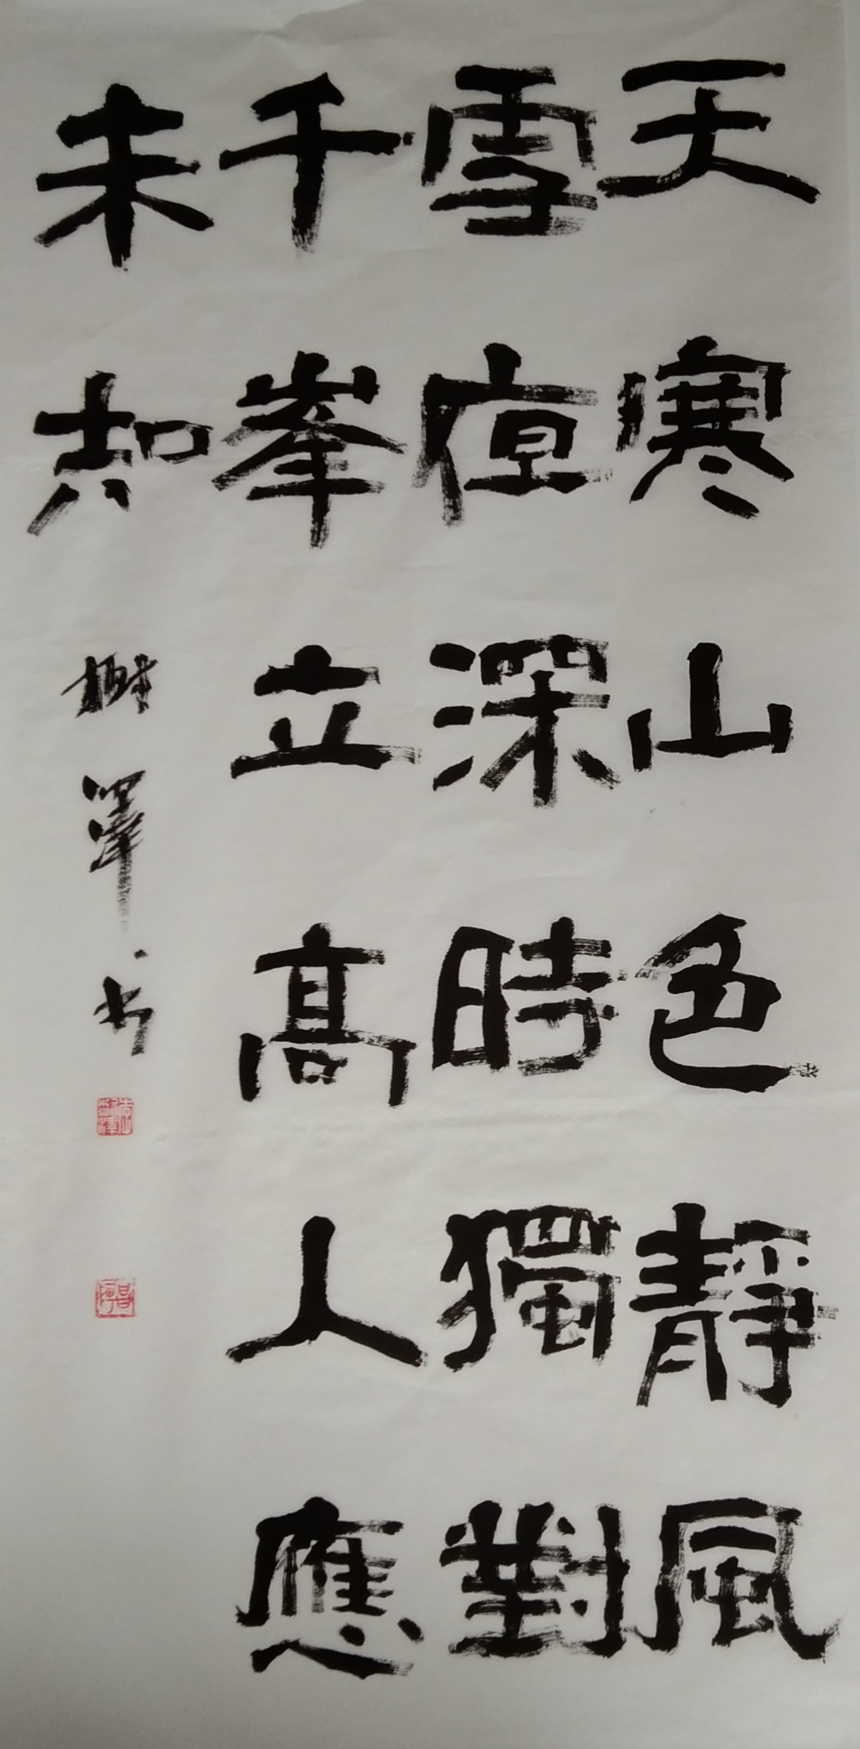 天寒山色靜風
雪深時獨對
千峯立高人應
未知
樹澤书